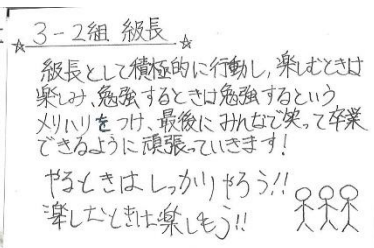 ☆3-2組 級長☆
級長として積極的に行動し,楽しむときは
楽しみ、勉強するときは勉強するという
メリハリをつけ、最後にみんなで笑って卒業
できるように頑張っていきます!
やるときはしっかりやろう!!
楽しむときは楽しもう!!